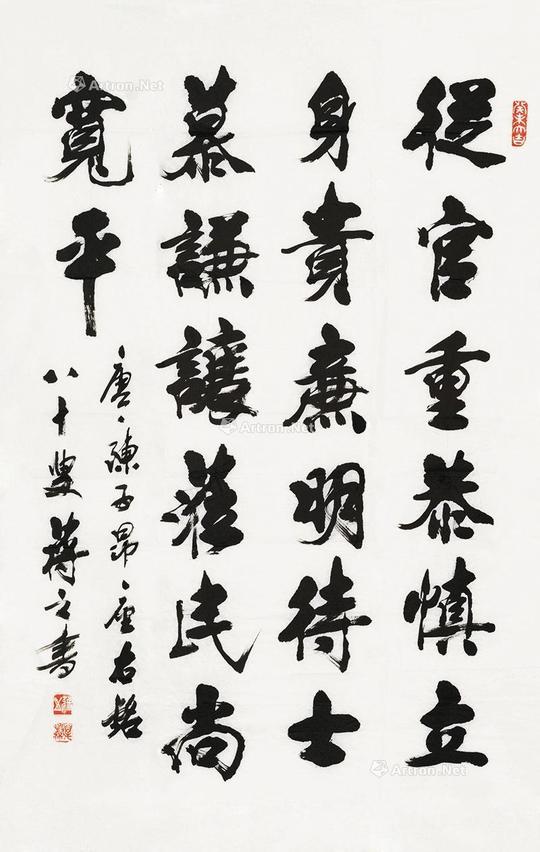 從官重恭慎立
身貴廉明待士
慕謙讓蒞民尚
寬平
唐、陳子昂、座右銘
八十叟蔣之書
癸未大吉
Artron.Net
Artron.Net
Artron.Net